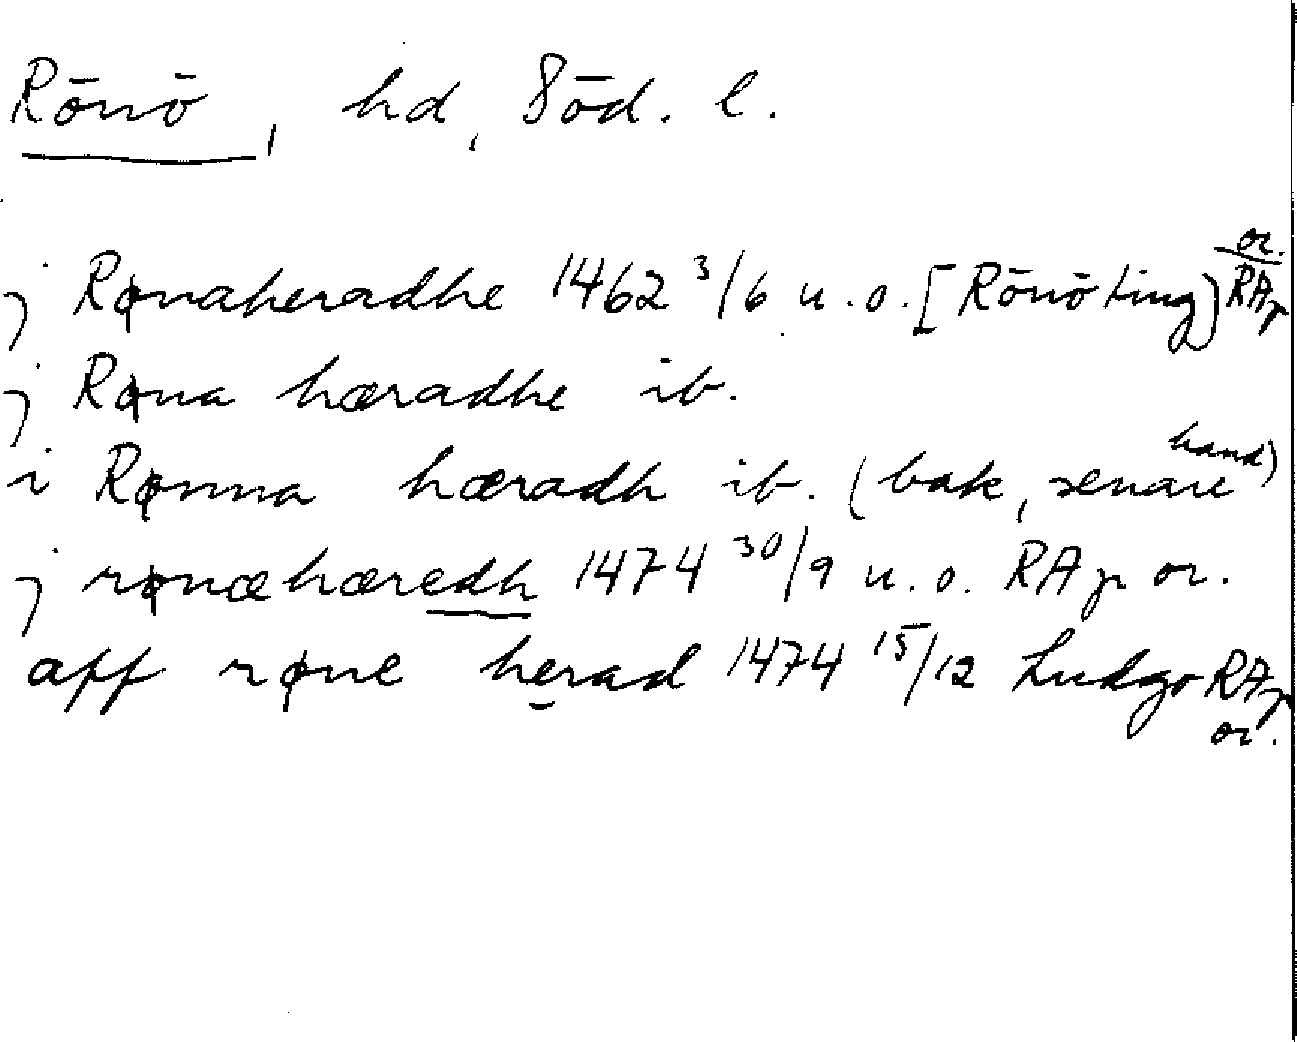 Rönö, hd, Söd. l.
j Rønaheradhe 1462 3/6 u.o. [Rönö ting] RAp or.
j Røna hæradhe ib.
i Rønna hæradh ib. (bak, senare hand)
j rønæhæredh 1474 30/9 u.o. RAp or.
aff røne herad 1474 15/12 Ludgo RAp or.